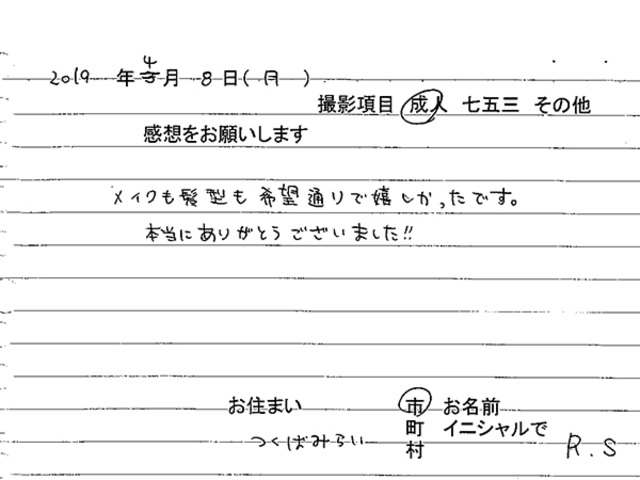 2019 年 4 月 8 日( 月 )
撮影項目 成人 七五三 その他
感想をお願いします
メイクも髪型も希望通りで嬉しかったです。
本当にありがとうございました!!
お住まい 市 お名前
町 イニシャルで
つくばみらい 村 R.S